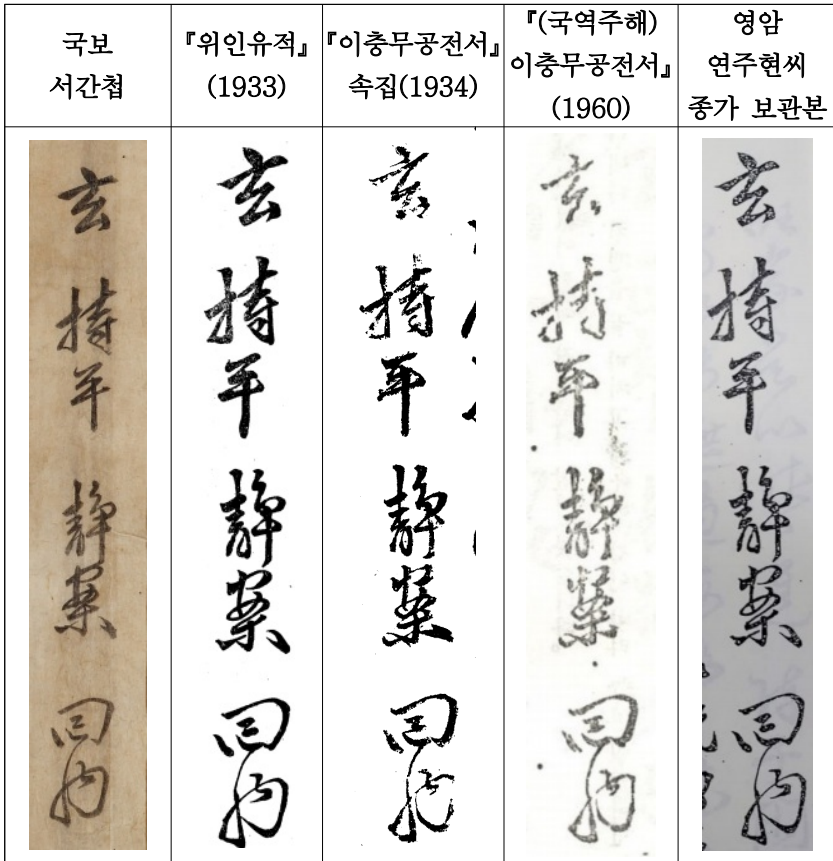 국보
서간첩
『위인유적』
(1933)
『이충무공전서』
속집(1934)
『(국역주해)
이충무공전서』
(1960)
영암
연주현씨
종가 보관본
玄持平靜案回納
玄持平靜案回納
玄持平靜案回納
玄持平靜案回納
玄持平靜案回納